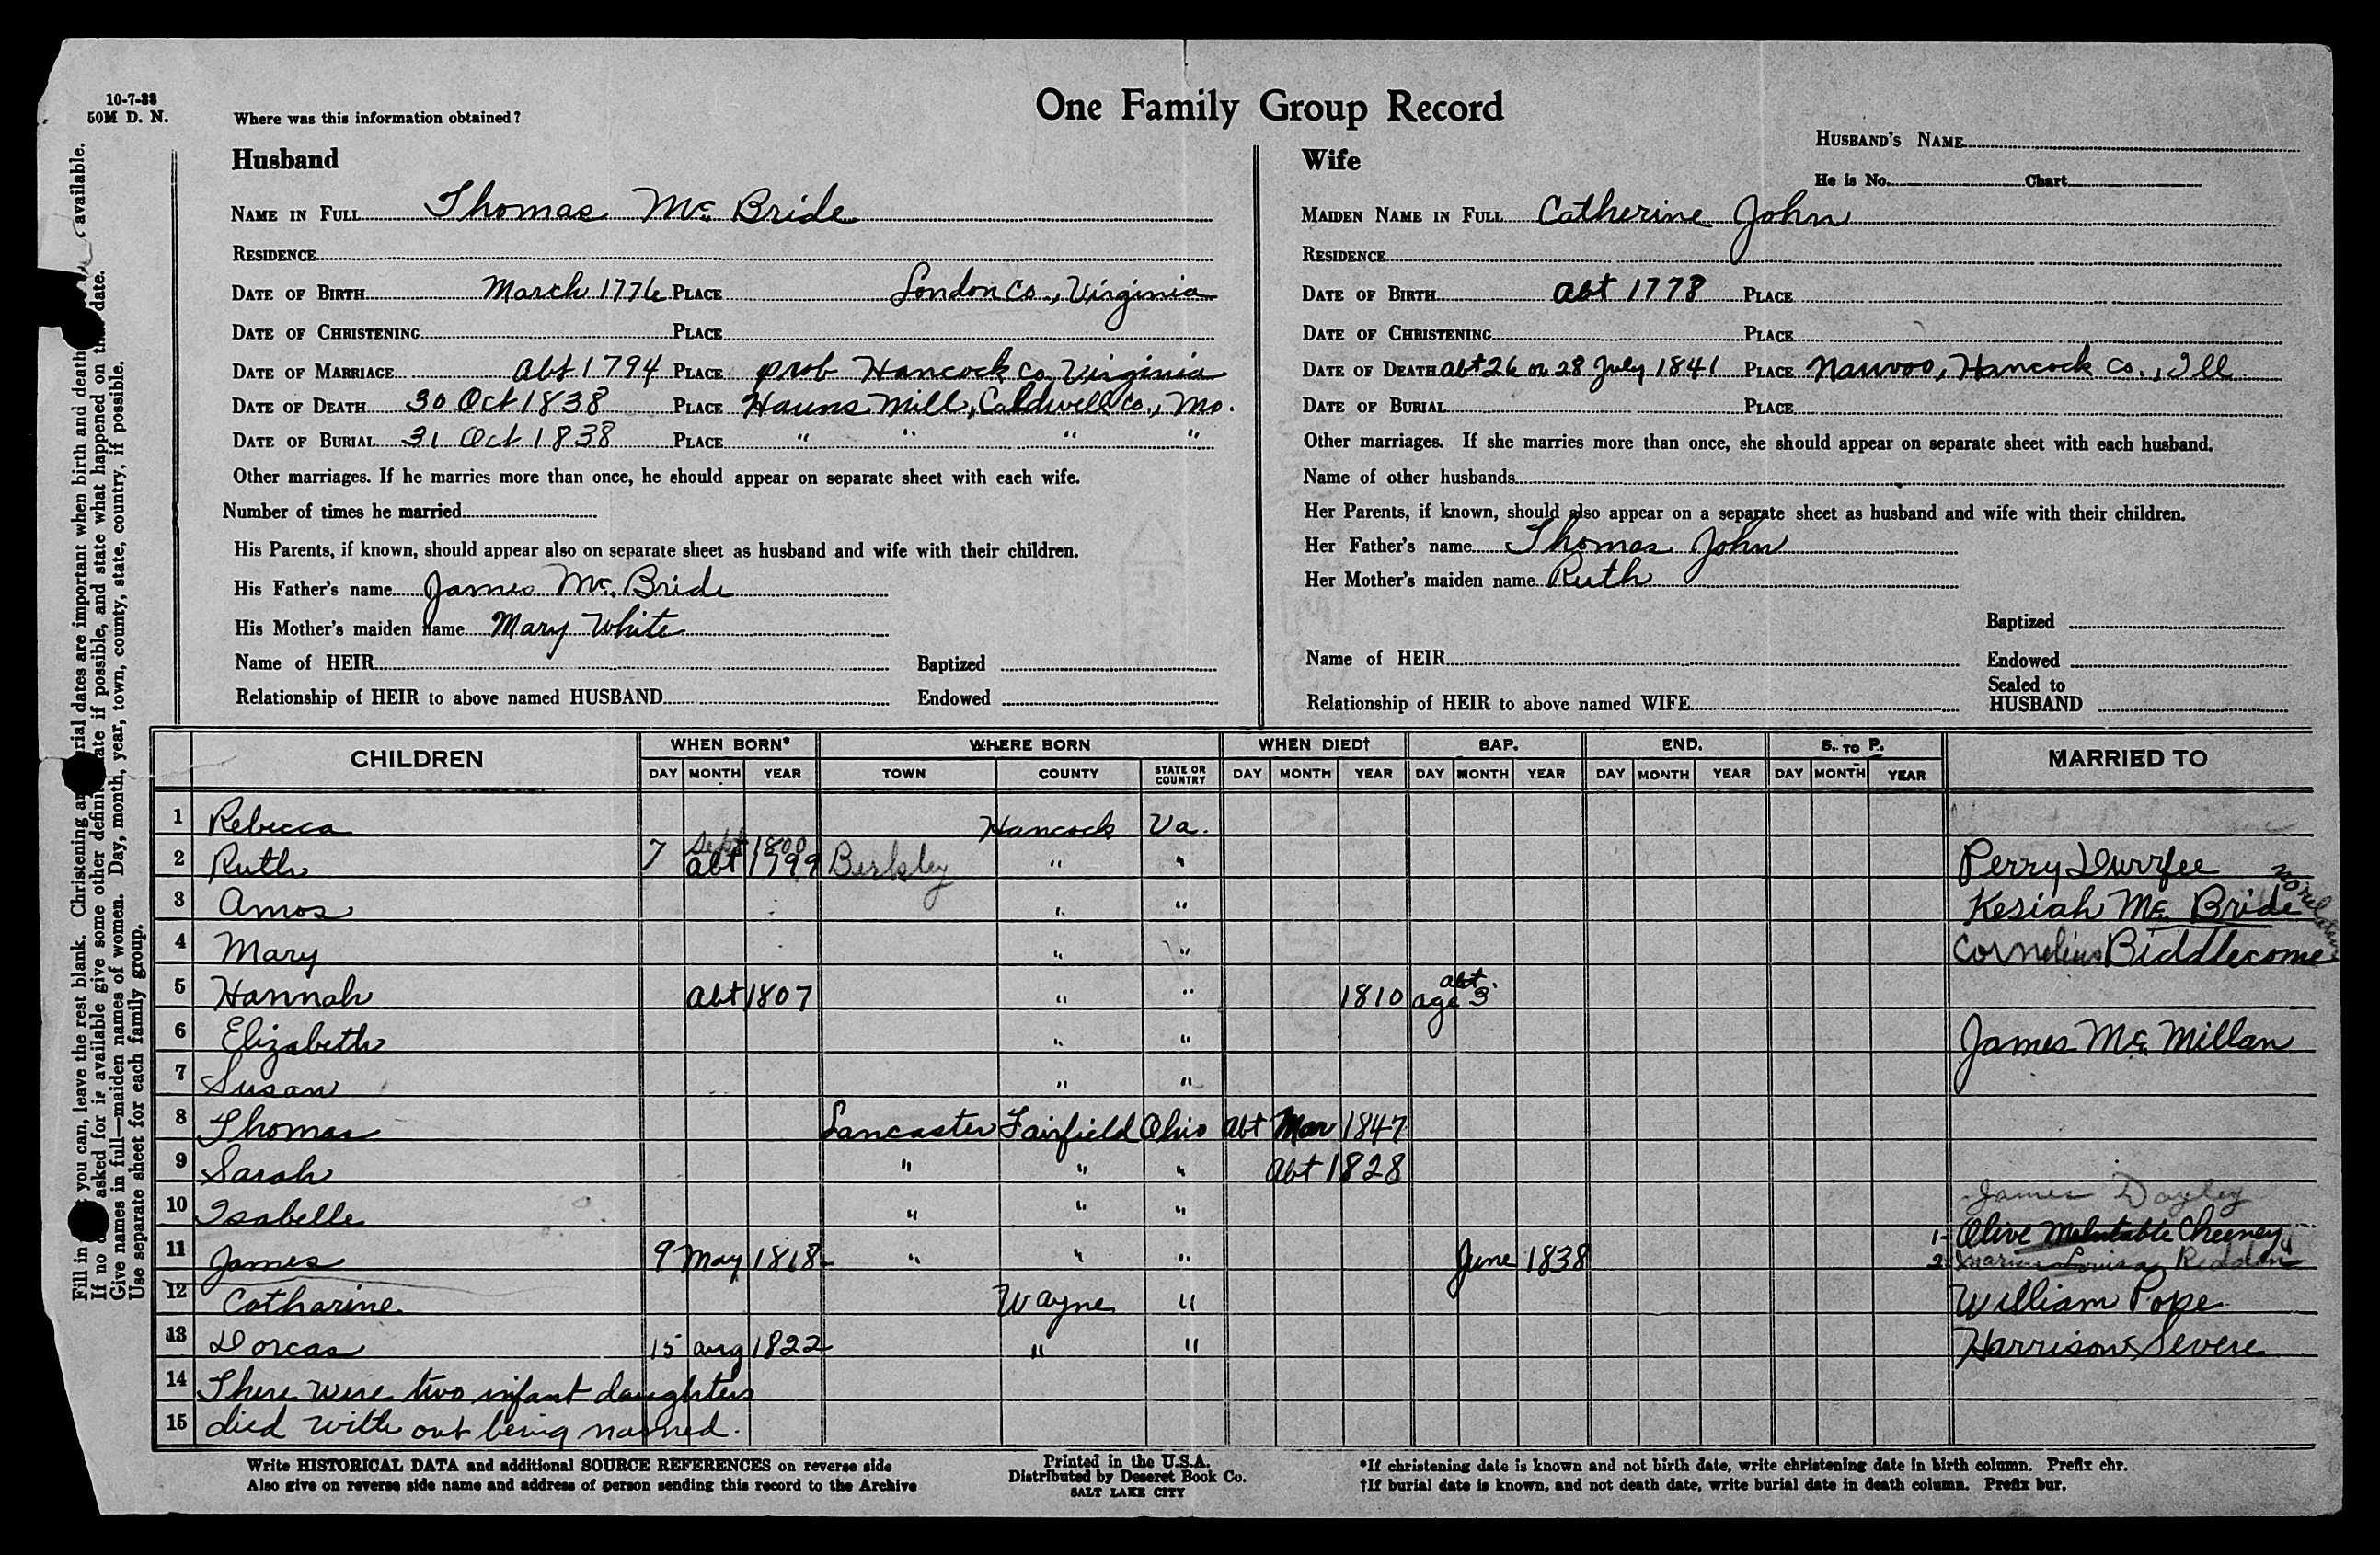 10-7-38
50M D. N.
Where was this information obtained?
One Family Group Record
HUSBAND'S NAME
He is No. Chart
Husband
NAME IN FULL Thomas Mc Bride
RESIDENCE
DATE OF BIRTH March 1776 PLACE London Co., Virginia
DATE OF CHRISTENING PLACE
DATE OF MARRIAGE abt 1794 PLACE prob Hancock Co, Virginia
DATE OF DEATH 30 Oct 1838 PLACE Hauns Mill, Caldwell Co., Mo.
DATE OF BURIAL 31 Oct 1838 PLACE " " " "
Other marriages. If he marries more than once, he should appear on separate sheet with each wife.
Number of times he married
His Parents, if known, should appear also on separate sheet as husband and wife with their children.
His Father's name James Mc. Bride
His Mother's maiden name Mary White
Name of HEIR Baptized
Relationship of HEIR to above named HUSBAND Endowed
Wife
MAIDEN NAME IN FULL Catherine John
RESIDENCE
DATE OF BIRTH abt 1778 PLACE
DATE OF CHRISTENING PLACE
DATE OF DEATH abt 26 or 28 July 1841 PLACE Nauvoo, Hancock Co., Ill
DATE OF BURIAL PLACE
Other marriages. If she marries more than once, she should appear on separate sheet with each husband.
Name of other husbands
Her Parents, if known, should also appear on a separate sheet as husband and wife with their children.
Her Father's name Thomas John
Her Mother's maiden name Ruth
Baptized
Name of HEIR Endowed
Sealed to
Relationship of HEIR to above named WIFE HUSBAND
CHILDREN WHEN BORN* WHERE BORN WHEN DIED† BAP. END. S. TO P. MARRIED TO
DAY MONTH YEAR TOWN COUNTY STATE OR COUNTRY DAY MONTH YEAR DAY MONTH YEAR DAY MONTH YEAR DAY MONTH YEAR
1 Rebecca Hancock Va.
Sept 1800
2 Ruth 7 abt 1799 Berkley " " Perry Durrfee
3 Amos " " Kesiah Mc. Bride no relation
4 Mary " " Cornelius Biddlecome
5 Hannah abt 1807 " " 1810 age abt. 3
6 Elizabeth " " James Mc. Millan
7 Susan " "
8 Thomas Lancaster Fairfield Ohio abt Mar 1847
9 Sarah " " " abt 1828
10 Isabelle " " " James Dayley
1- Olive Mehitable Cheeney
11 James 9 May 1818 " " " June 1838 2- Louisa
12 Catharine Wayne " William Pope
13 Dorcas 15 aug 1822 " " Harrison Severe
14 There were two infant daughters
15 died with out being named.
Write HISTORICAL DATA and additional SOURCE REFERENCES on reverse side
Also give on reverse side name and address of person sending this record to the Archive
Printed in the U.S.A.
Distributed by Deseret Book Co.
SALT LAKE CITY
*If christening date is known and not birth date, write christening date in birth column. Prefix chr.
†If burial date is known, and not death date, write burial date in death column. Prefix bur.
Fill in you can, leave the rest blank. Christening rial dates are important when birth and death available.
If no asked for is available give some other definite date if possible, and state what happened on date.
Give names in full—maiden names of women. Day, month, year, town, county, state, country, if possible.
Use separate sheet for each family group.